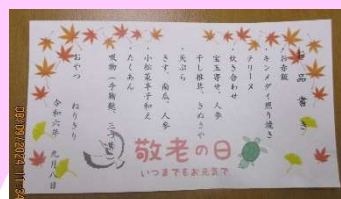 お品書き
・お赤飯
・キンメダイ照り焼き
・テリーヌ
・炊き合わせ
宝玉寄せ、人参
干し椎茸、きぬさや
・天ぷら
きす、南瓜、人参
・小松菜辛子和え
・たくあん
・吸物（手鞠麩、三つ葉）
おやつ　ねりきり
令和六年　九月八日
敬老の日
いつまでもお元気で
08/09/2024 11:34